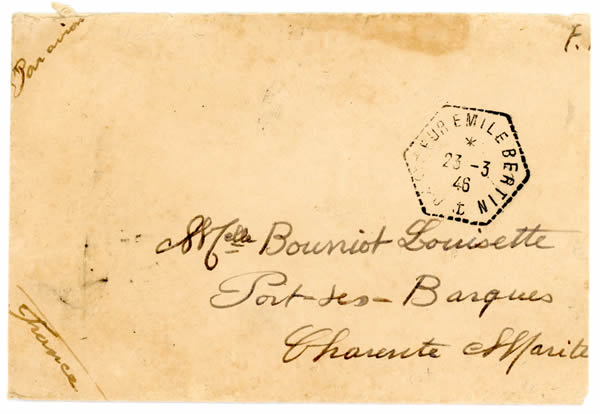 Par avion
F.
CROISEUR EMILE BERTIN
*
23 - 3
46
Melle Bourriot Louisette
Port-des-Barques
Charente Marite
France